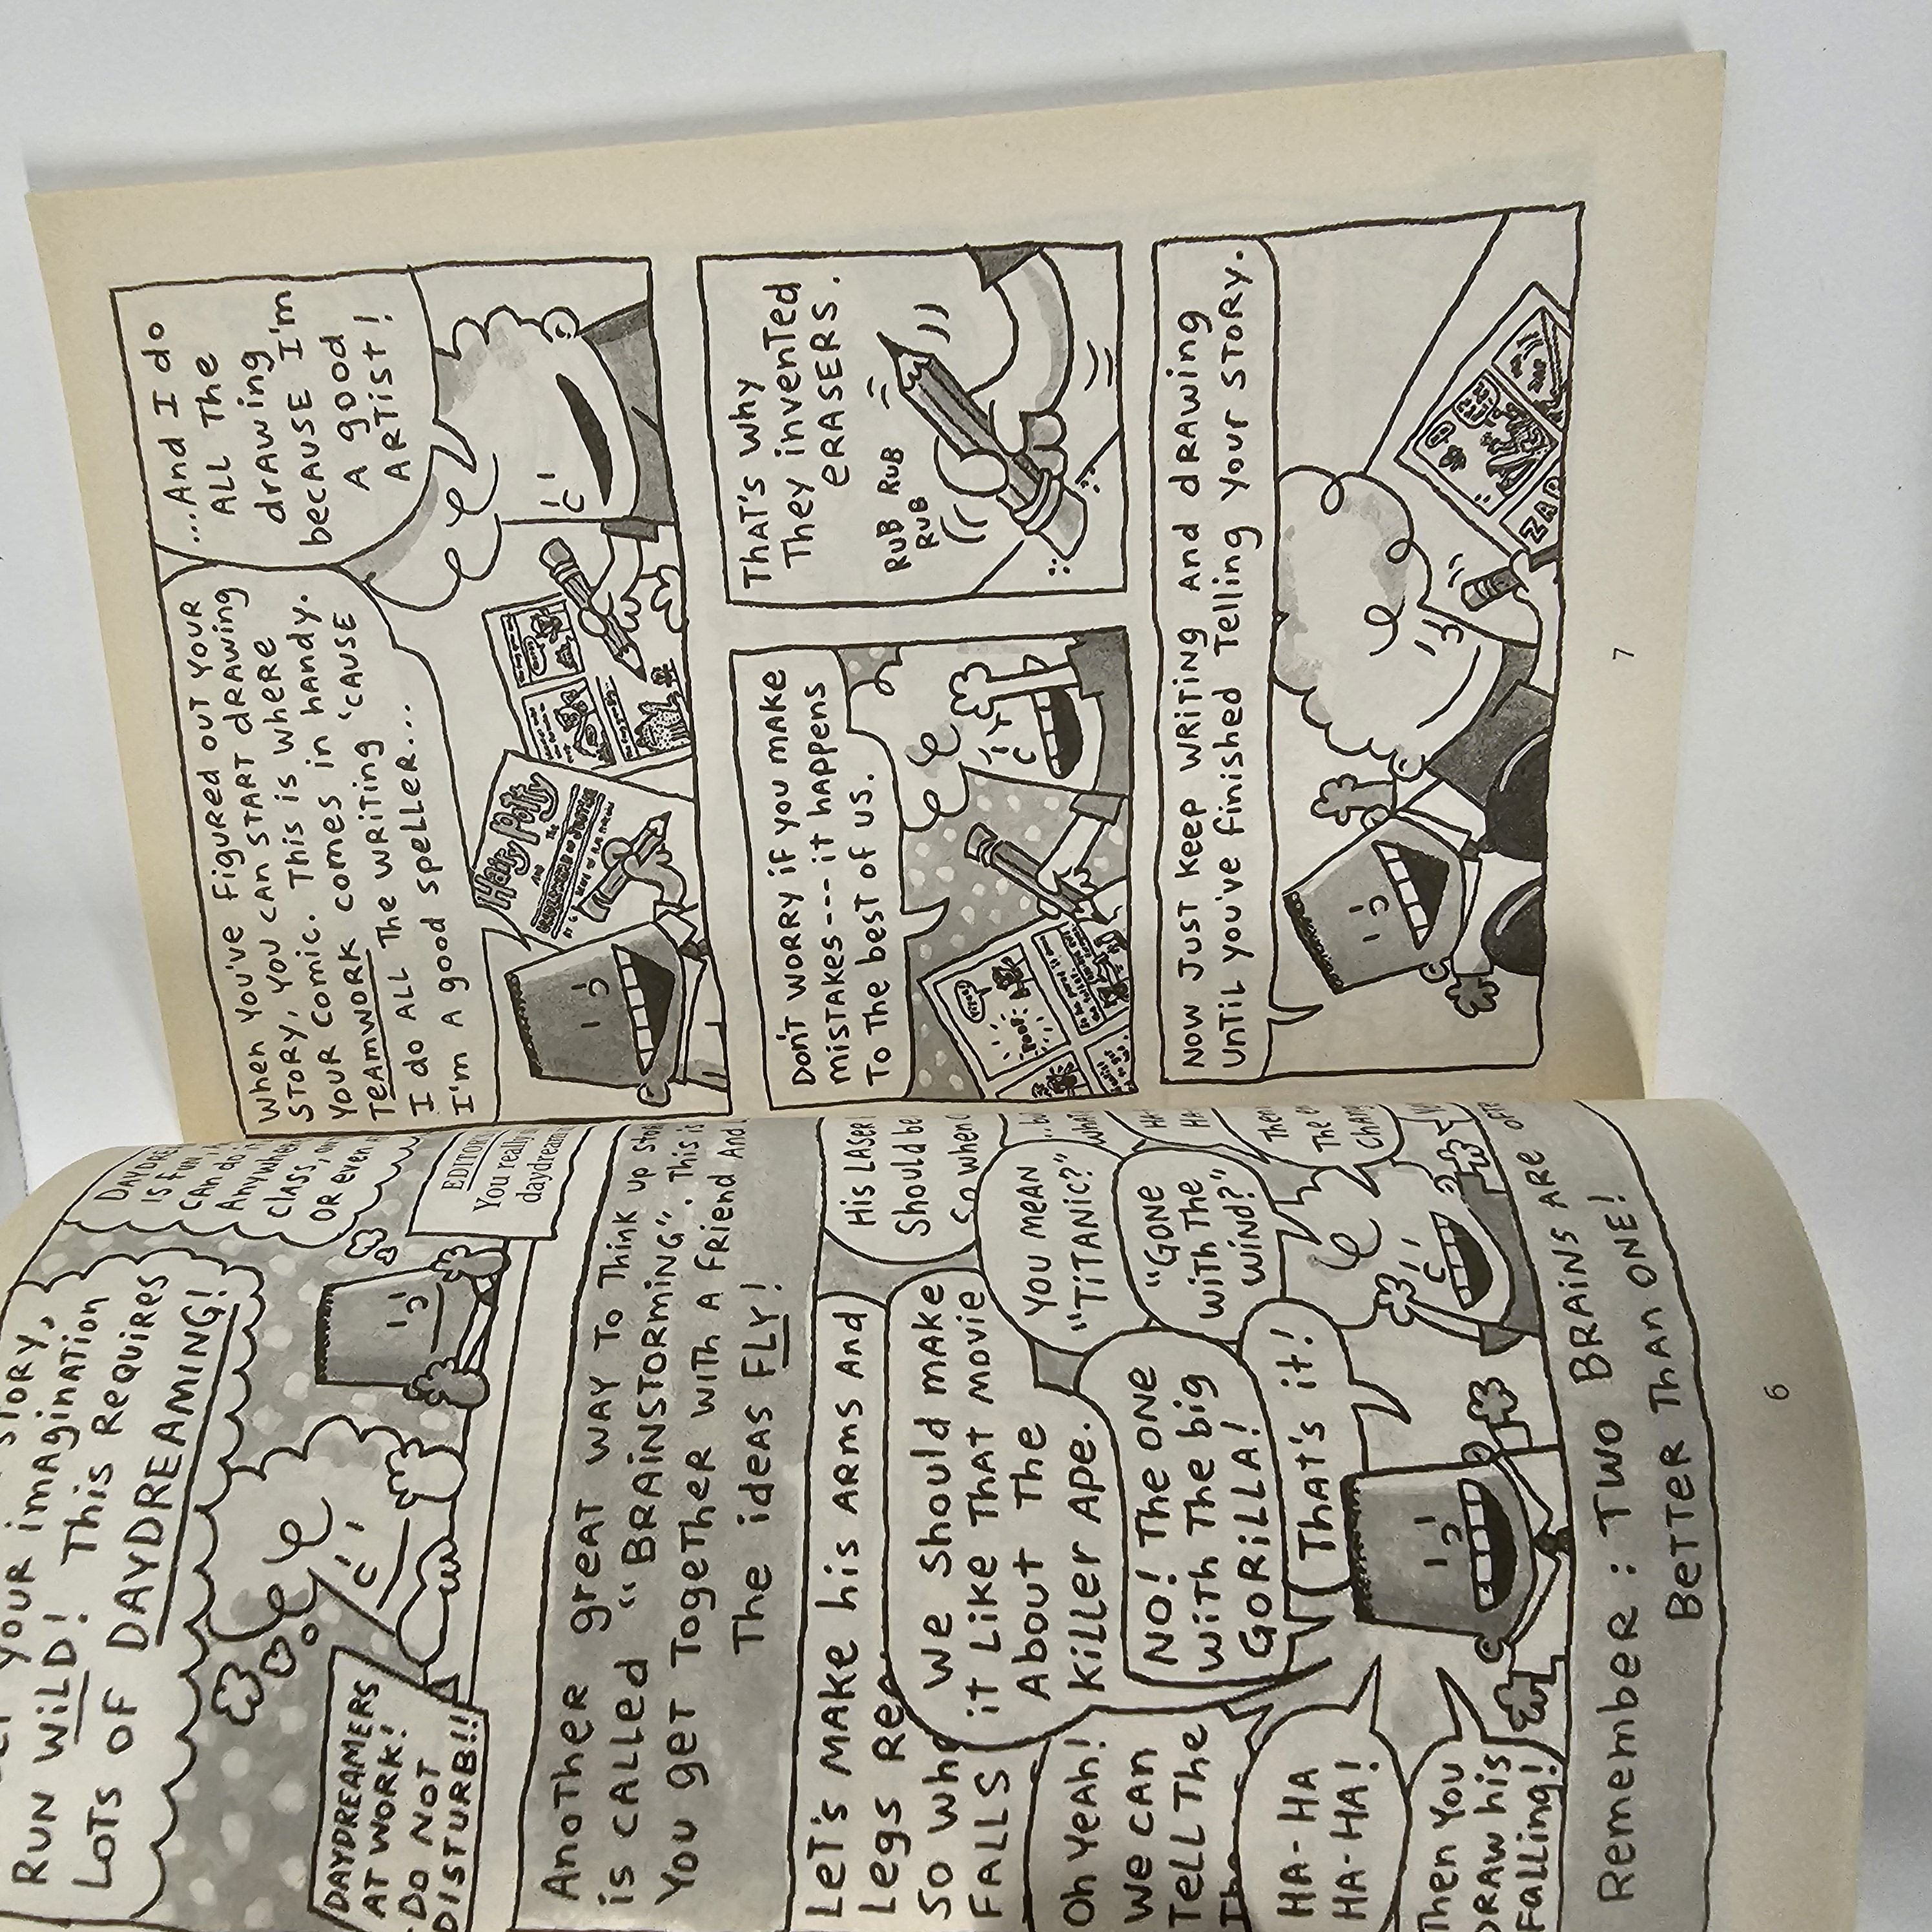 STORY,
YOUR imAginATion
RUN WiLD! This ReQuiRes
LoTs OF DAYDREAMING!
DAYDREAMERS
AT WORK!
DO NOT
DISTURB!!
IS FUN
CAN do
class,
OR even
You really
daydream
AnoTheR greAT WAY To Think up
is cALLed "BRAiNSTORmiNG". This is
You geT TogeTheR WiTh A FRiend And
The ideAs FLY!
LeT's MAKe his ARms And
Legs
So
FALLS
His LAseR
Should be
So when
We should mAKe
iT LiKe ThAT movie
About The
KiLLeR Ape.
YOU MEAN
"TiTANiC?"
Oh YeAh!
We CAn
TeLL The
NO! The ONe
WiTh The big
GORiLLA!
"GONe
WiTh The
WiND?"
HA-HA
HA-HA!
ThAT's iT!
Then You
DRAW his
FaLLing!
Remember: TWO BRAiNS ARe
BeTTeR ThAn ONE!
6
When You've FiguRed ouT YouR
SToRy, You cAn START dRAWing
YouR Comic. This is wheRe
TeAmwoRK comes in hAndy.
I do ALL The WRiTing 'CAUSE
I'm A good speLLeR...
...And I do
ALL The
drAwing
becAuse I'm
A good
ARTisT!
HAiRy PoTTy
AND The
DON'T WORRY iF you mAKe
misTAKes--- iT hAppens
To The besT of us.
POOF
ThAT's why
They invenTed
eRASERS.
RuB RuB
RuB
NOW JUST Keep WRiTing And dRAwing
UnTiL you've finished TeLLing Your SToRy.
ZAP
7